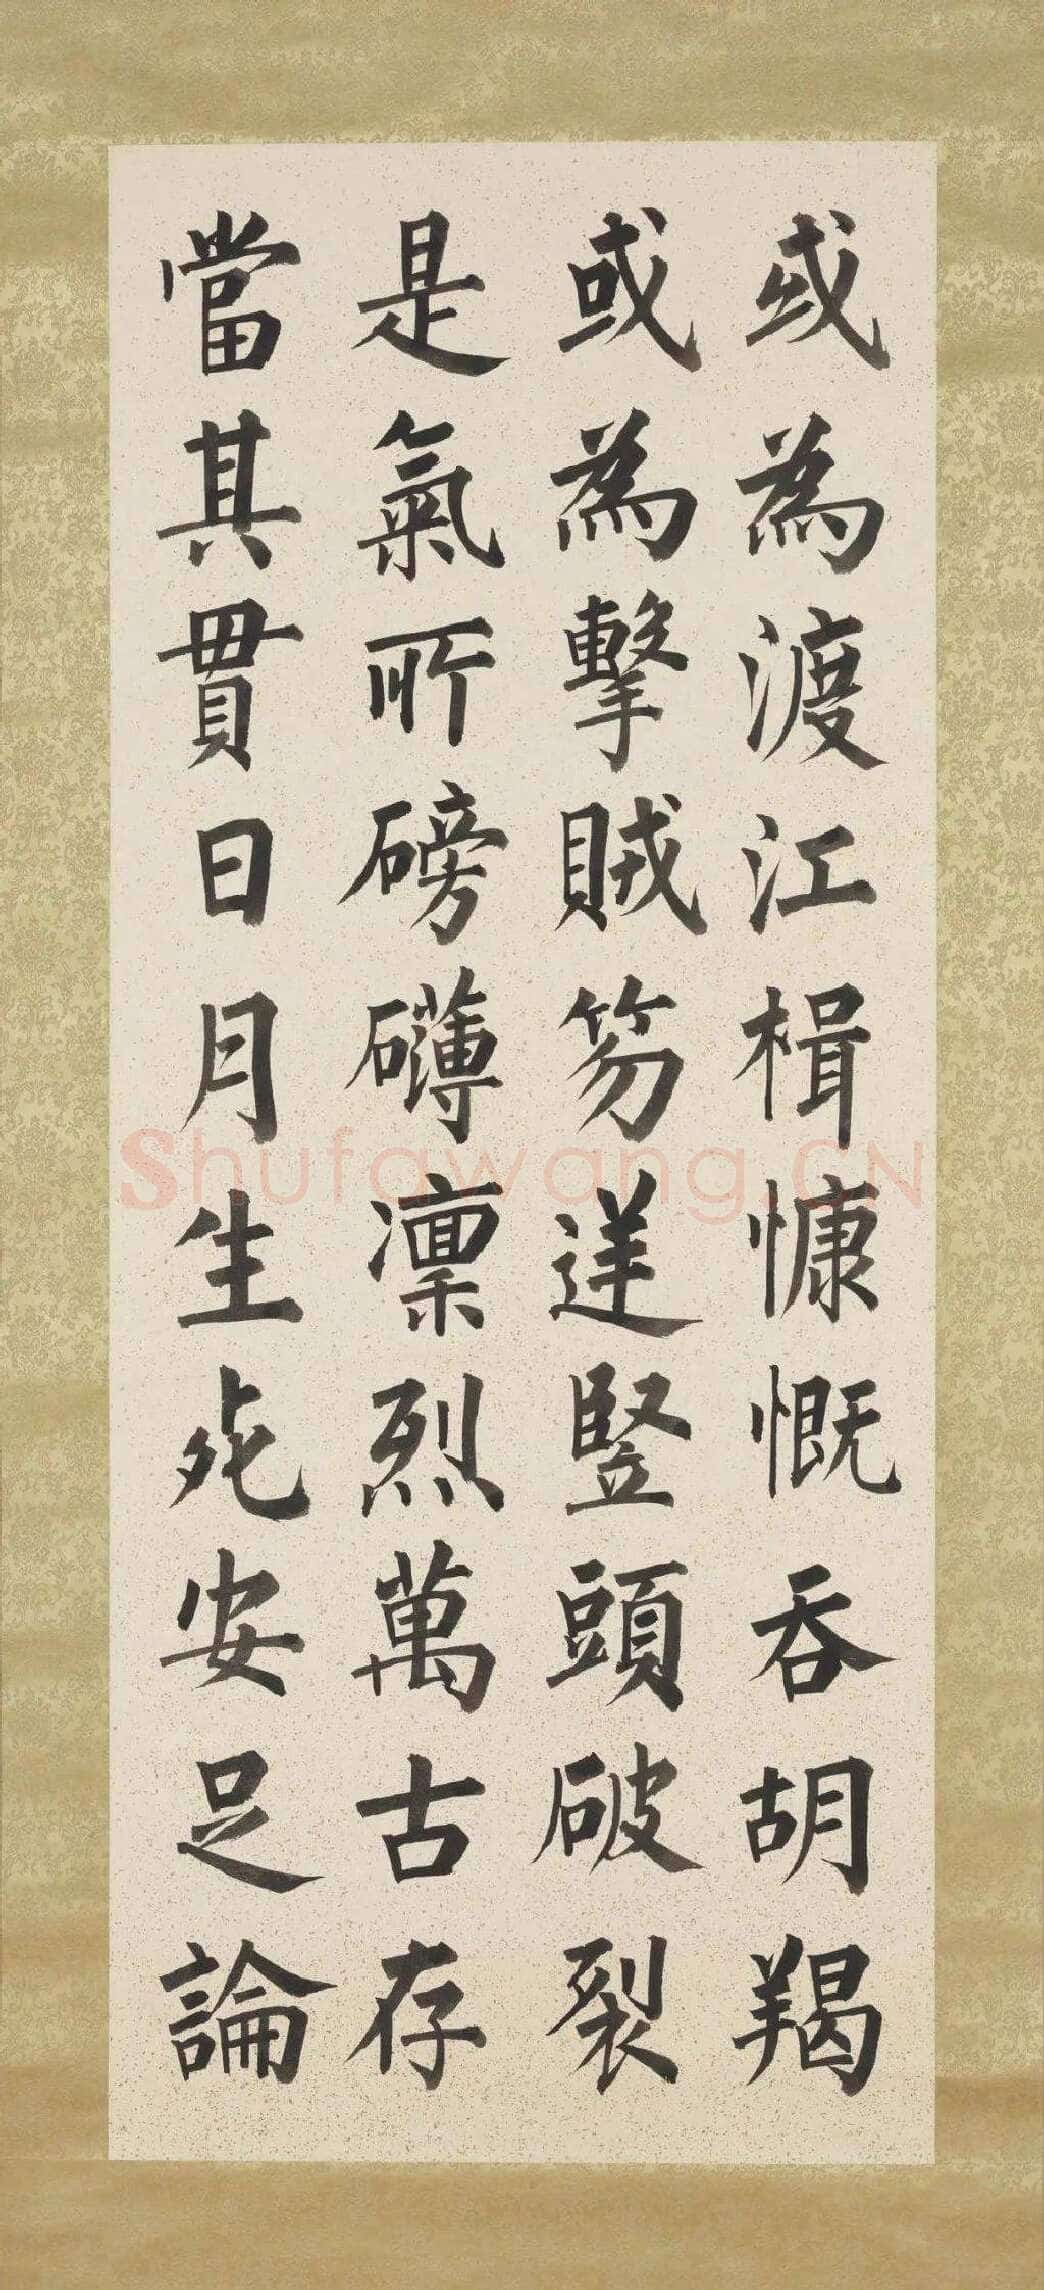 或為渡江楫慷慨吞胡羯
或為擊賊笏逆豎頭破裂
是氣所磅礴凜烈萬古存
當其貫日月生死安足論
Shufawang.CN